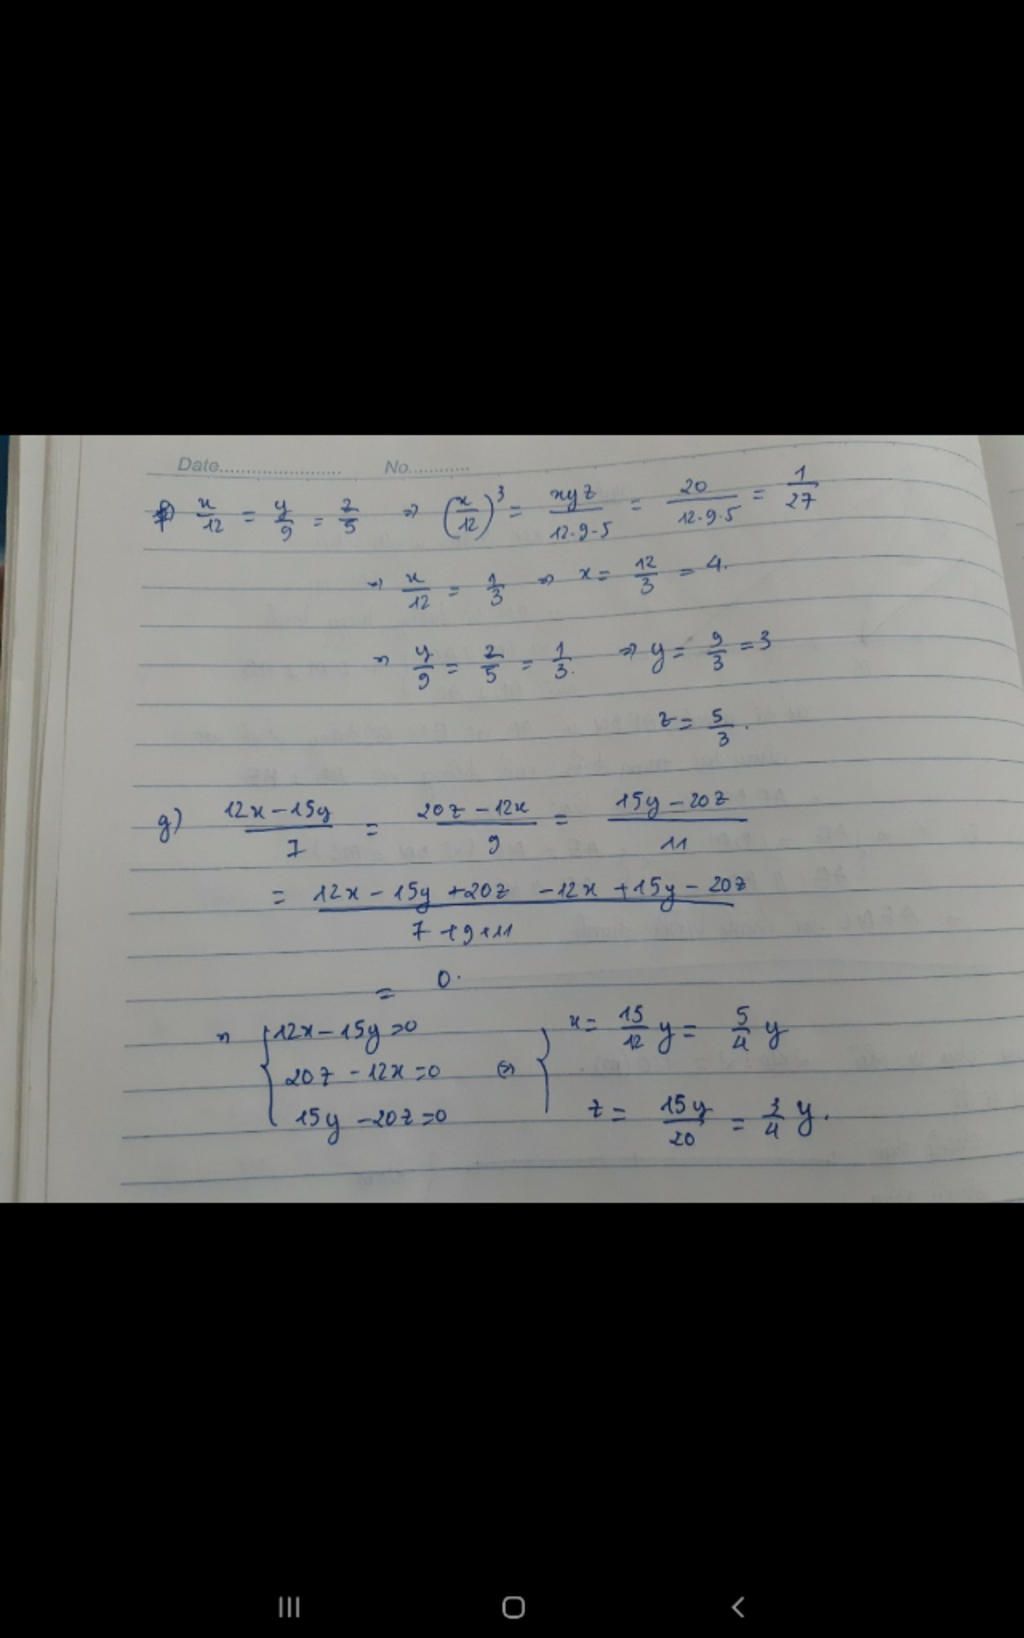 Date........................ No............
f) x/12 = y/9 = z/5 => (x/12)^3 = xyz/12.9.5 = 20/12.9.5 = 1/27
=> x/12 = 1/3 => x = 12/3 = 4.
=> y/9 = z/5 = 1/3. => y = 9/3 = 3
z = 5/3.
g) 12x - 15y/7 = 20z - 12x/9 = 15y - 20z/11
= 12x - 15y + 20z - 12x + 15y - 20z/7 + 9 + 11
= 0.
=> { 12x - 15y = 0
20z - 12x = 0 <=> {
15y - 20z = 0
x = 15/12 y = 5/4 y
z = 15y/20 = 3/4 y.